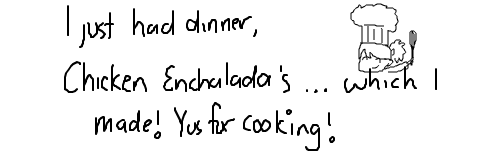 I just had dinner,
Chicken Enchalada's ... which I
made! Yus for cooking!